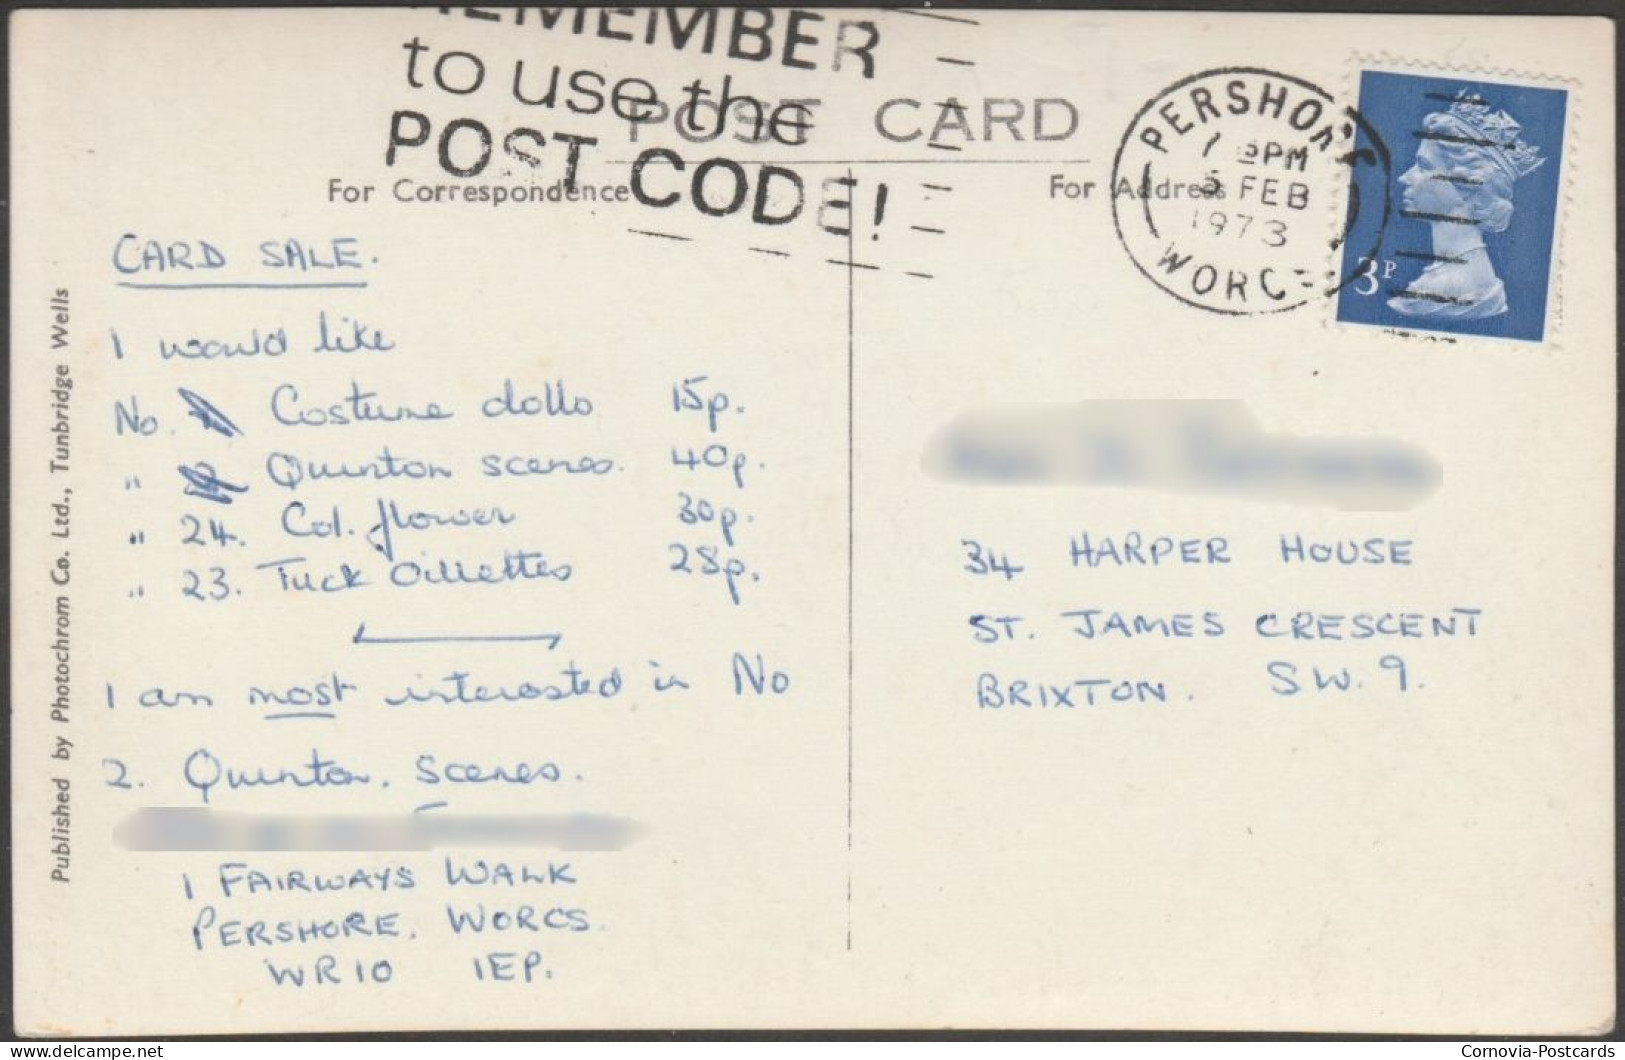 REMEMBER
to use the
POST CODE!
POST CARD
For Correspondence
For Address
PERSHORE
1 PM
5 FEB
1973
WORCS
3P
CARD SALE.
I would like
No. Costume dolls 15p.
" Quinton scenes. 40p.
" 24. Col. flower 30p.
" 23. Tuck Oillettes 28p.
I am most interested in No
2. Quinton. Scenes.
1 FAIRWAYS WALK
PERSHORE. WORCS.
WR10 1EP.
34 HARPER HOUSE
ST. JAMES CRESCENT
BRIXTON. S.W.9.
Published by Photochrom Co. Ltd., Tunbridge Wells
delcampe.net
Cornovia-Postcards